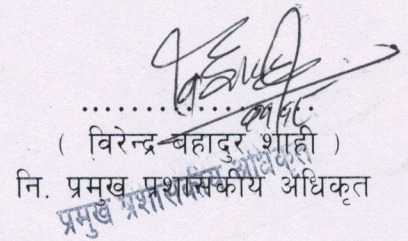 ( विरेन्द्र बहादुर शाही )
नि. प्रमुख प्रशासकीय अधिकृत
प्रमुख प्रशासकीय अधिकृत